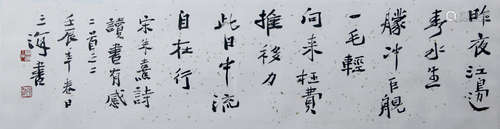 昨夜江邊
春水生
艨冲巨艦
一毛輕
向來枉費
推移力
此日中流
自在行
宋朱熹詩
讀書有感
二首之二
壬辰年春日
三海書